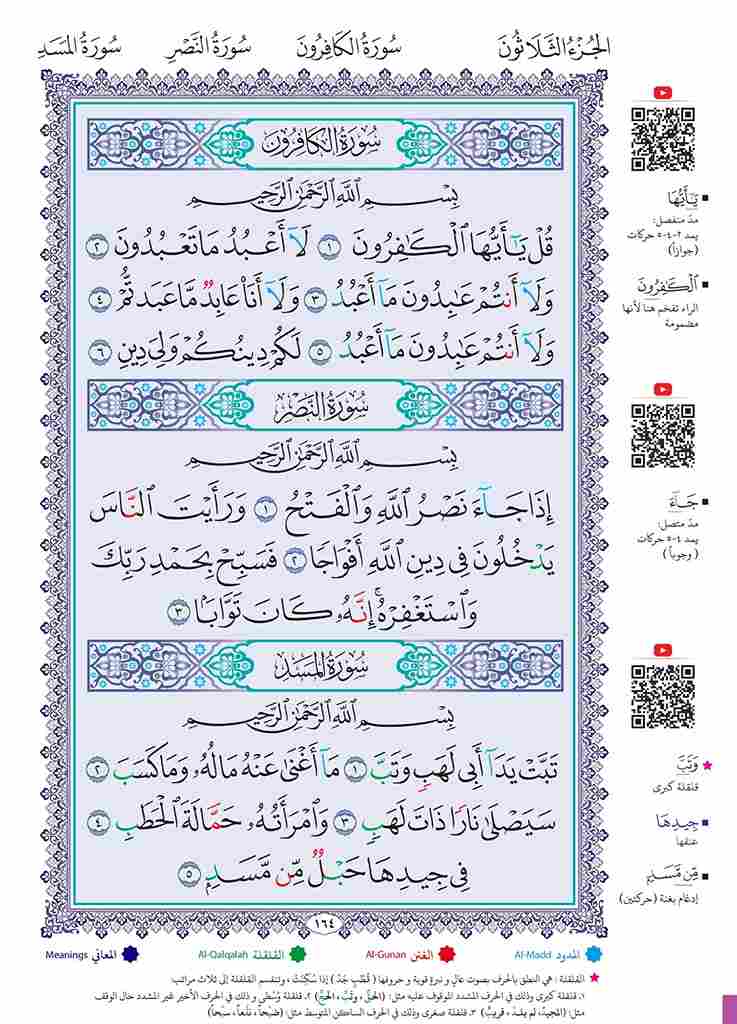 الجزء الثلاثون
سورة الكافرون
سورة النصر
سورة المسد
سُورَةُ الكَافِرُونَ
بِسْمِ اللَّهِ الرَّحْمَٰنِ الرَّحِيمِ
قُلْ يَٰٓأَيُّهَا ٱلْكَٰفِرُونَ ١ لَآ أَعْبُدُ مَا تَعْبُدُونَ ٢
وَلَآ أَنتُمْ عَٰبِدُونَ مَآ أَعْبُدُ ٣ وَلَآ أَنَا۠ عَابِدٌ مَّا عَبَدتُّمْ ٤
وَلَآ أَنتُمْ عَٰبِدُونَ مَآ أَعْبُدُ ٥ لَكُمْ دِينُكُمْ وَلِىَ دِينِ ٦
سُورَةُ النَّصْرِ
بِسْمِ اللَّهِ الرَّحْمَٰنِ الرَّحِيمِ
إِذَا جَآءَ نَصْرُ ٱللَّهِ وَٱلْفَتْحُ ١ وَرَأَيْتَ ٱلنَّاسَ
يَدْخُلُونَ فِى دِينِ ٱللَّهِ أَفْوَاجًا ٢ فَسَبِّحْ بِحَمْدِ رَبِّكَ
وَٱسْتَغْفِرْهُ ۚ إِنَّهُۥ كَانَ تَوَّابًۢا ٣
سُورَةُ المَسَدِ
بِسْمِ اللَّهِ الرَّحْمَٰنِ الرَّحِيمِ
تَبَّتْ يَدَآ أَبِى لَهَبٍ وَتَبَّ ١ مَآ أَغْنَىٰ عَنْهُ مَالُهُۥ وَمَا كَسَبَ ٢
سَيَصْلَىٰ نَارًا ذَاتَ لَهَبٍ ٣ وَٱمْرَأَتُهُۥ حَمَّالَةَ ٱلْحَطَبِ ٤
فِى جِيدِهَا حَبْلٌ مِّن مَّسَدٍۭ ٥
١٦٤
يَٰٓأَيُّهَا
مدّ منفصل:
يمد ٢-٤-٥ حركات
(جوازاً)
ٱلْكَٰفِرُونَ
الراء تفخم هنا لأنها
مضمومة
جَآءَ
مدّ متصل:
يمد ٤-٥ حركات
(وجوباً)
وَتَبَّ
قلقلة كبرى
جِيدِهَا
عنقها
مِّن مَّسَدٍۭ
إدغام بغنة (حركتين)
المدود Al-Madd
الغنن Al-Gunan
القلقلة Al-Qalqalah
المعاني Meanings
القلقلة : هي النطق بالحرف بصوت عالٍ و نبرة قوية و حروفها ( قُطْبُ جَدّ ) إذا سُكِنَتْ ، وتنقسم القلقلة إلى ثلاث مراتب
١. قلقلة كبرى وذلك في الحرف المشدد الموقوف عليه مثل: (الحقّ ، وتبّ ، الحجّ) ٢. قلقلة وُسْطى و ذلك في الحرف الأخير غير المشدد حال الوقف
مثل: (المجيدُ، لم يلدْ ، قريبٌ) ٣. قلقلة صغرى وذلك في الحرف الساكن المتوسط مثل: (ضَبْحاً ، نقْعاً ، سبْحاً)